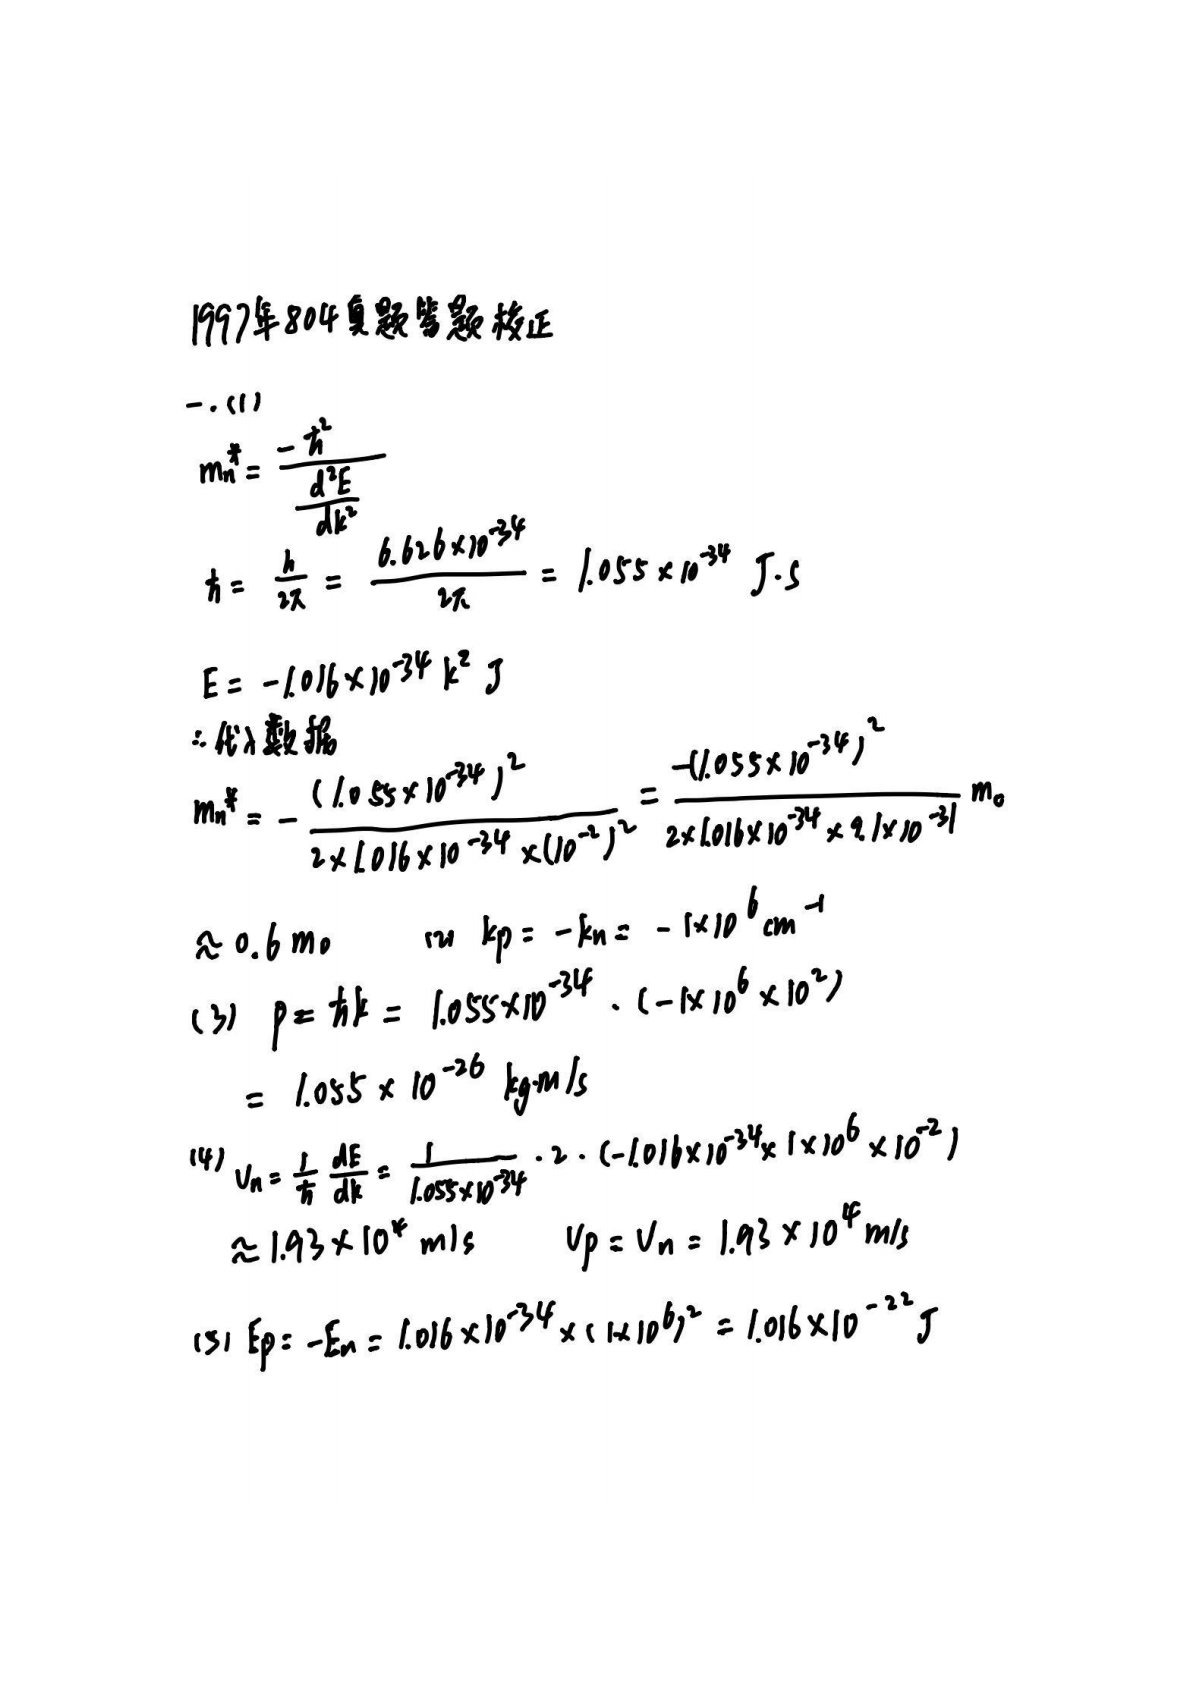 1997年804真题答题校正
一.(1)
mn* = -ħ² / (d²E/dk²)
ħ = h/2π = 6.626×10⁻³⁴/2π = 1.055×10⁻³⁴ J·s
E = -1.016×10⁻³⁴ k² J
∴代入数据
mn* = - (1.055×10⁻³⁴)² / 2×1.016×10⁻³⁴×(10⁻²)² = -(1.055×10⁻³⁴)² / 2×1.016×10⁻³⁴×9.1×10⁻³¹ m₀
≈ 0.6m₀ (2) kp = -kn = -1×10⁶cm⁻¹
(3) p = ħk = 1.055×10⁻³⁴ · (-1×10⁶×10²)
= 1.055×10⁻²⁶ kg·m/s
(4) υn = 1/ħ dE/dk = 1/1.055×10⁻³⁴ · 2 · (-1.016×10⁻³⁴×1×10⁶×10⁻²)
≈ 1.93×10⁴ m/s υp = υn = 1.93×10⁴ m/s
(5) Ep = -En = 1.016×10⁻³⁴×(1×10⁶)² = 1.016×10⁻²² J